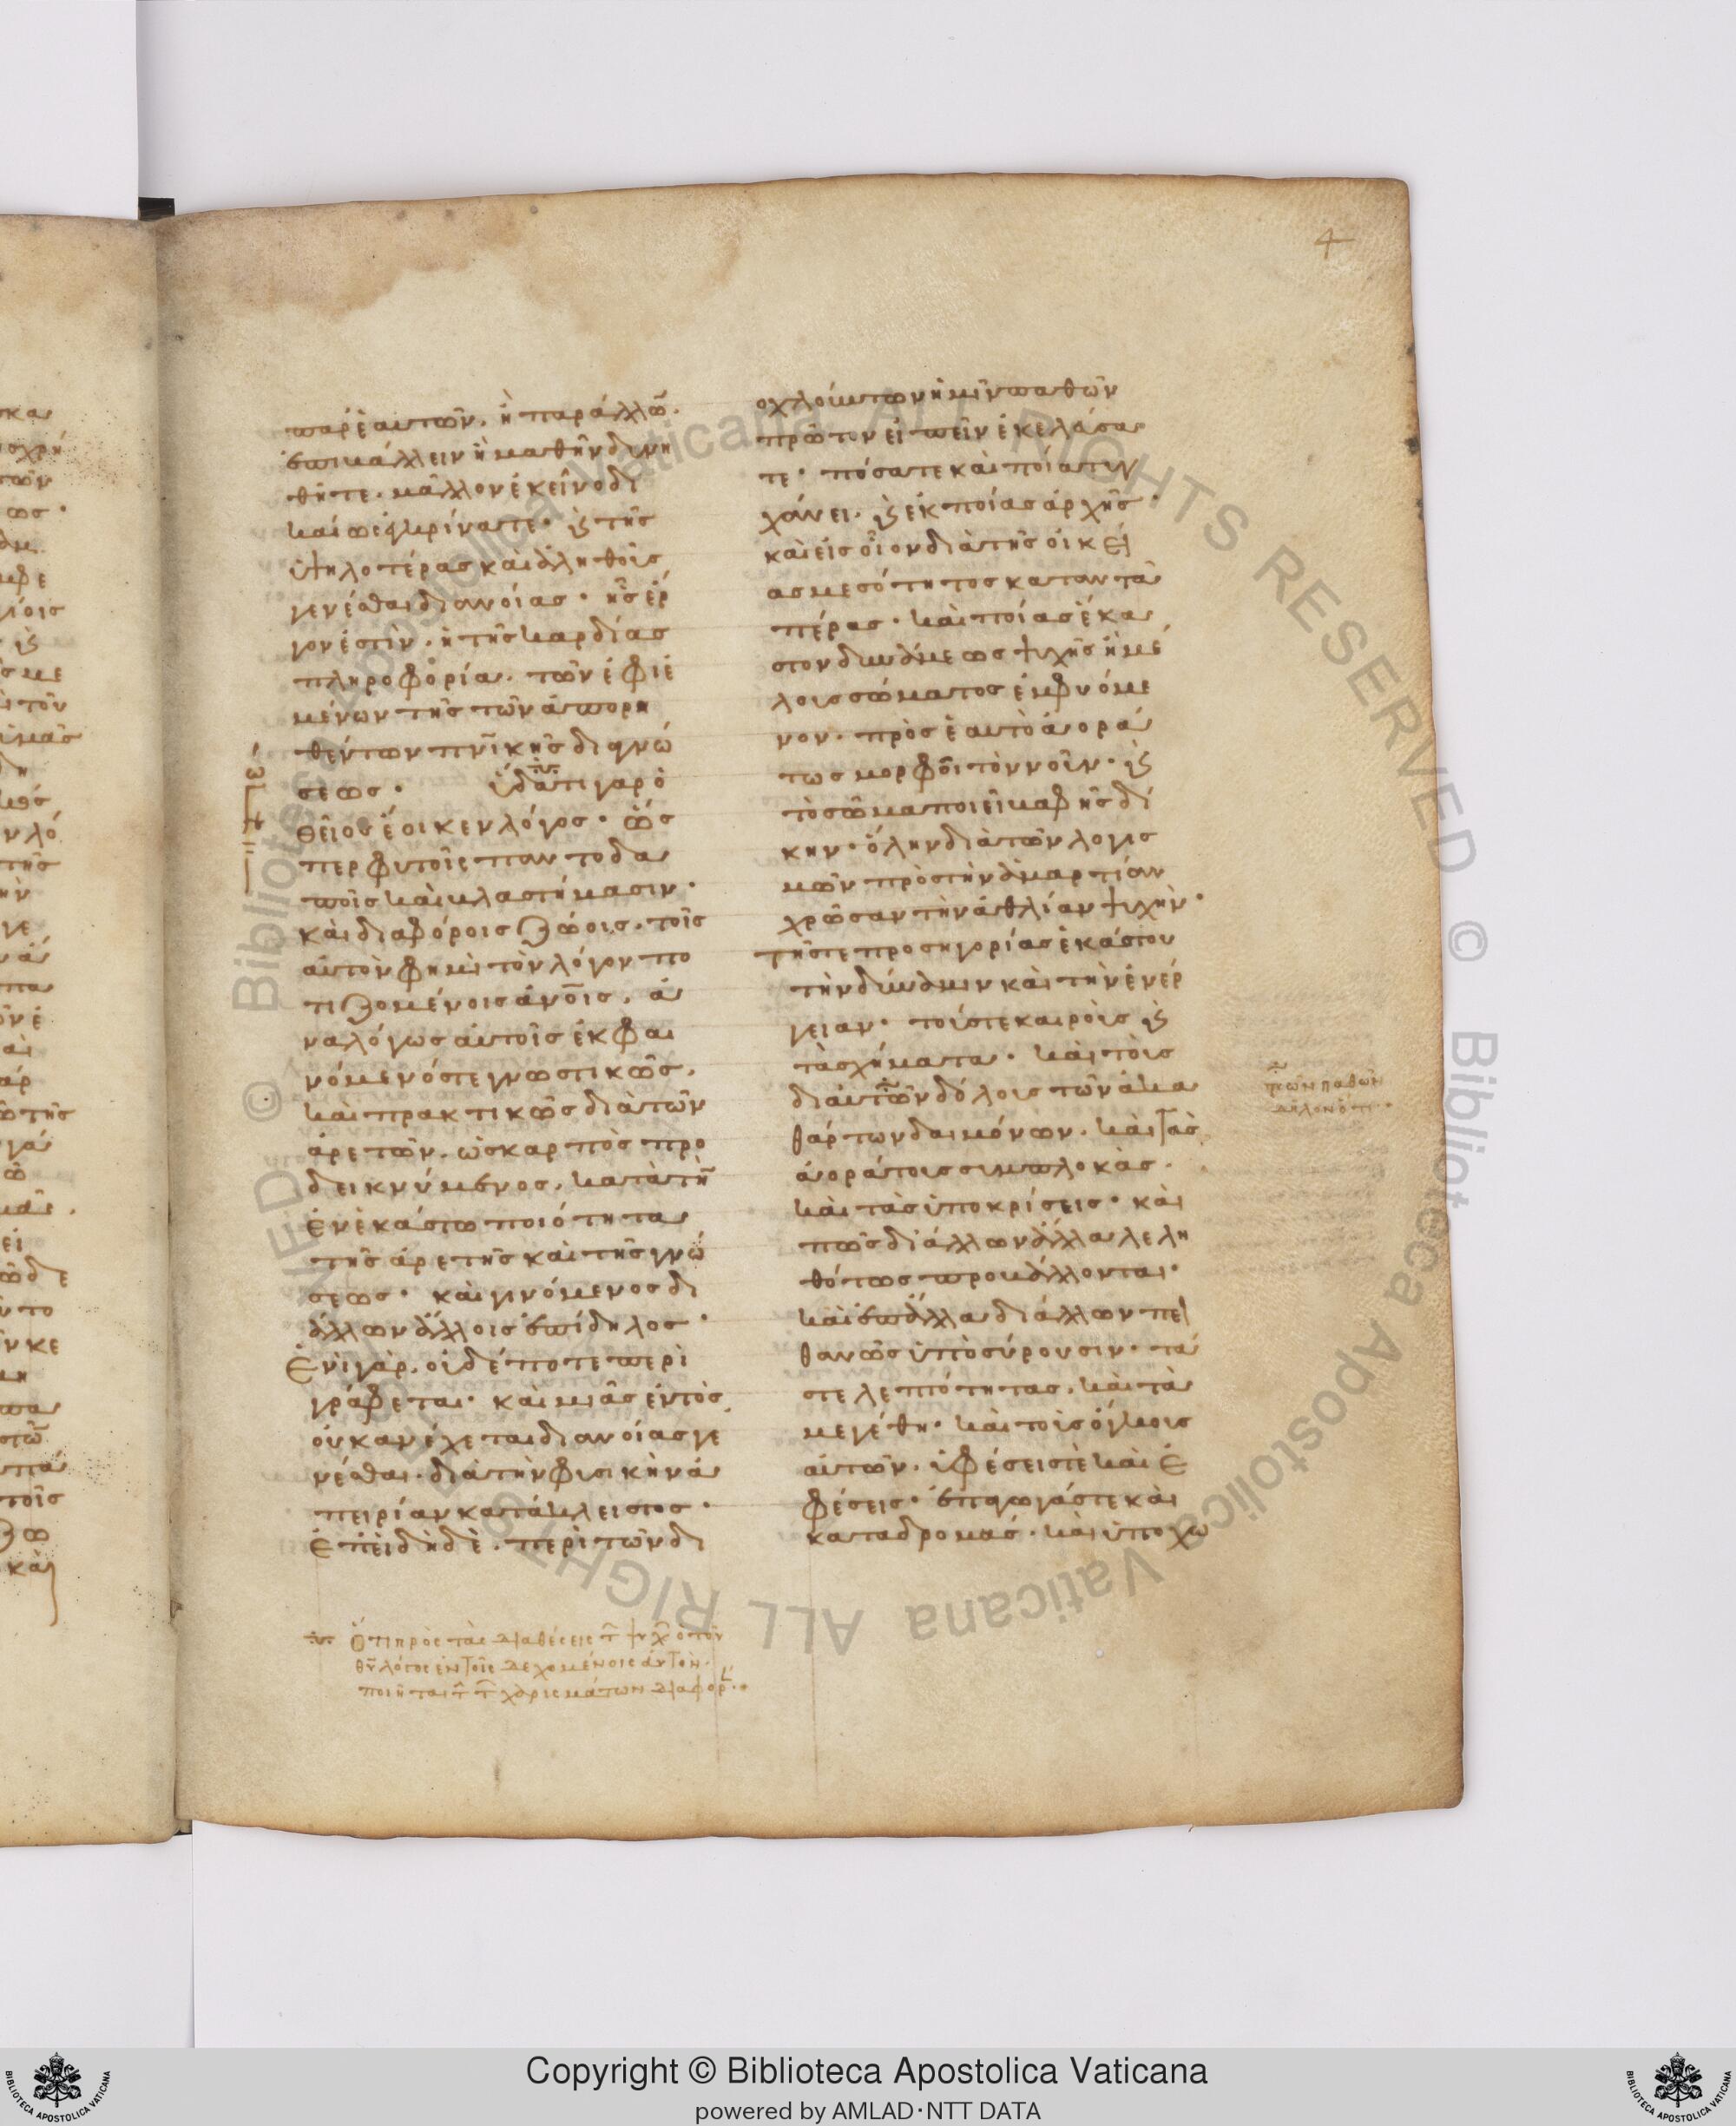 4
παρ' ἑαυτῶν. ἢ παρ' ἄλλω̅.
ἐπιβάλλειν ἢ μαθεῖν δυνη
θῆτε. μᾶλλον ἐκεῖνο δι
καίως ἐκρίνατε· κ(αὶ) τῆς
ὑψηλοτέρας καὶ ἀληθοῦς
γενέσθαι διανοίας· ἧς ἔρ
γον ἐστὶν. ἡ τῆς καρδίας
πληροφορία. τῶν ἐφιε
μένων τῆς τῶν ἀπορη
θέντων πνικῆς διαγνώ
σεως· ὕδατι γὰρ ὁ
θεῖος ἔοικεν λόγος· ὥσ
περ φυτοῖς παντοδα
ποῖς καὶ βλαστήμασιν·
καὶ διαφόροις ζώοις. τοῖς
αὐτὸν φημὶ τὸν λόγον πο
τιζομένοις ἀνοις. ἀ
ναλόγως αὐτοῖς ἐκφαι
νόμενός τε γνωστικῶς.
καὶ πρακτικῶς διὰ τῶν
ἀρετῶν. ὡς καρπὸς προ
δεικνύμενος. κατὰ τὴ̅
ἐν ἑκάστω ποιότητα
τῆς ἀρετῆς καὶ τῆς γνώ
σεως· καὶ γινόμενος δι
ἄλλων ἄλλοις ἐπίδηλος·
Ἑνὶ γὰρ. οὐδέποτε περι
γράφεται· καὶ μιᾶς ἐντὸς
οὐκ ἀνέχεται διανοίας γε
νέσθαι. διὰ τὴν φυσικὴν ἀ
πειρίαν κατάκλειστος·
Ἐπειδὴ δὲ. περὶ τῶν δι
οχλούντων ἡμῖν παθῶν
πρῶτον εἰπεῖν ἐκελεύσα
τε· πόσα τε καὶ ποῖα τυγ
χάνει. κ(αὶ) ἐκ ποίας ἀρχῆς·
καὶ εἰς οἷον διὰ τῆς οἰκεί
ας μεσότητος καταντᾶ
πέρας· καὶ ποίας ἕκα
στον δυνάμεως ψυχῆς ἢ μέ
λους σώματος ἐμφυόμε
νον. πρὸς ἑαυτὸ ἀορά
τως μορφοῖ τὸν νοῦν· κ(αὶ)
τὸ σῶμα ποιεῖ βαφῆς δί
κην· ὅλην διὰ τῶν λογισ
μῶν πρὸς τὴν ἁμαρτίαν
χρῶσαν τὴν ἀθλίαν ψυχήν·
τῆς τε προσηγορίας ἑκάστου
τὴν δύναμιν καὶ τὴν ἐνέρ
γειαν· τούς τε καιροὺς κ(αὶ)
τὰ σχήματα· καὶ τοὺς
δι' αὐτῶν δόλους τῶν ἀκα
θάρτων δαιμόνων. καὶ τὰς
ἀοράτους συμπλοκὰς.
καὶ τὰς ὑποκρίσεις· καὶ
πῶς δι' ἄλλων ἄλλα λελη
θότως προβάλλονται·
καὶ ἐπ' ἄλλα δι' ἄλλων πει
θανῶς ὑποσύρουσιν· τάς
τε λεπτότητας. καὶ τὰ
μεγέθη· καὶ τοὺς ὄγκους
αὐτῶν. ὑφέσεις τὲ καὶ ἐ
φέσεις· ἐπαγωγάς τε καὶ
καταδρομάς. καὶ ὑποχω
τῶν παθῶν
δηλονότι·
Ὅτι πρὸς τὰς διαθέσεις τ̅ ψυχ̅ ὁ τοῦ
θυ̅ λόγος ἐν τοῖς δεχομένοις αὐτὸν.
ποιῆται τ̅ τ̅ χαρισμάτων διαφορ
Copyright © Biblioteca Apostolica Vaticana
powered by AMLAD·NTT DATA